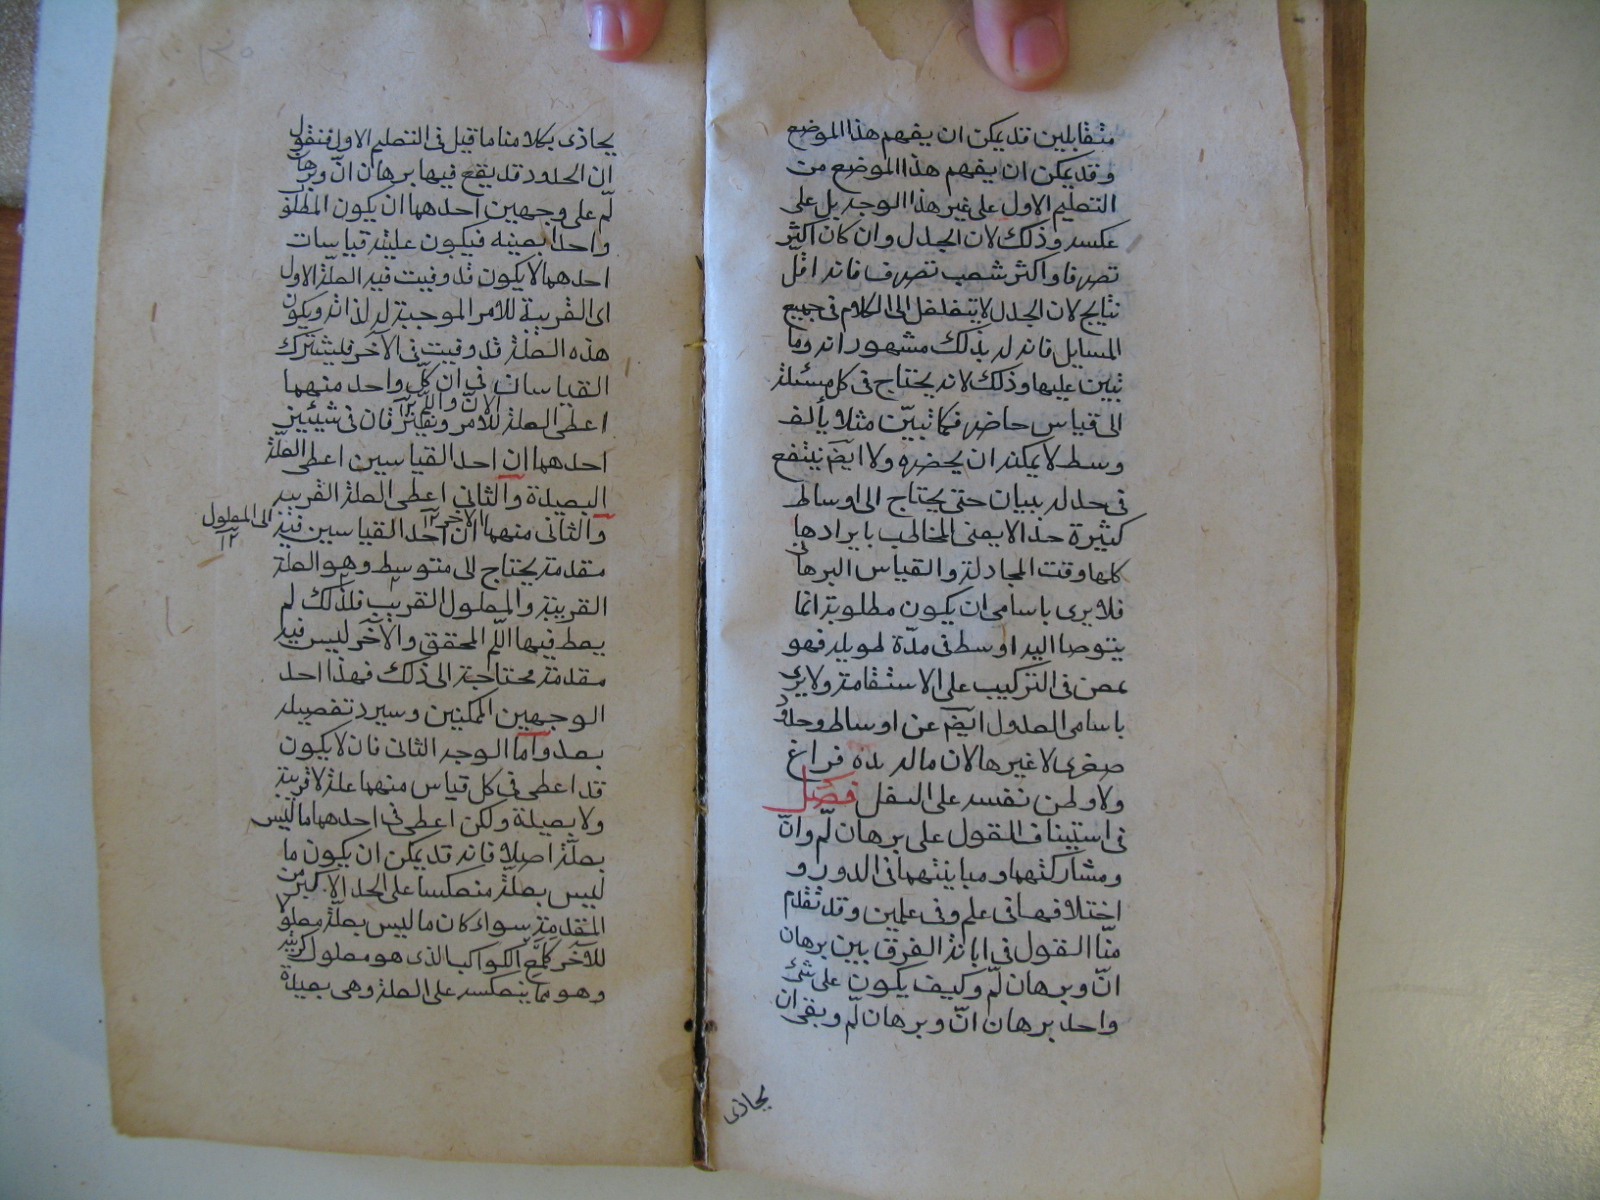 متقابلين قد يمكن ان يفهم هذا الموضع
وقد يمكن ان يفهم هذا الموضع من
التعليم الاول على غير هذا الوجه بل على
عكسه وذلك لان الجدل وان كان اكثر
تصرفا واكثر شعب تصرف فانه اقل
نتايج لان الجدل لا يتغلغل الى الكلام فى جميع
المسايل فانه له بذلك مشهوراته وما
تبين عليها وذلك لانه يحتاج فى كل مسئلة
الى قياس حاضر فكما تبيّن مثلا بألف
وسط لا يمكنه ان يحضره ولا ايضم ينتفع
فى جدله ببيان حتى يحتاج الى اوساط
كثيرة جدا لا يعنى المخاطب بايرادها
كلها وقت المجادلة والقياس البرهانى
فلا يرى باسا فى ان يكون مطلوبة انما
يتوصا اليه اوسط فى مدّة طويله فهو
يمعن فى التركيب على الاستقامة ولا يرى
باسا فى العدول ايضم عن اوساط وحدود
صغرى لا غيرها لان ماله مدة فراغ
ولا وطن نفسه على النقل فصل
فى استيناف القول على برهان لمّ وانّ
ومشاركتهما ومباينتهما فى الدور و
اختلافهما فى علم وفى علمين وقد تقدم
منّا القول فى ابانة الفرق بين برهان
انّ وبرهان لمّ وكيف يكون على شئ
واحد برهان انّ وبرهان لمّ وبقى ان
يحاذى
يحاذى بكلامنا ما قيل فى التعليم الاول فنقول
ان الحدود قد يقع فيها برهان انّ وبرهان
لّم على وجهين احدهما ان يكون المطلوب
واحدا بعينه فيكون عليه قياسات
احدهما لا يكون قد وفيت فيه العلّة الاولى
اى القريبة للامر الموجبة له لذاته ويكون
هذه العلّة قد وفيت فى الآخر فليشترك
القياسان فى ان كلّ واحد منهما
الانّ واللّم ١٢
اعطى العلة للامر ويفترقان فى شيئين
احدهما ان احد القياسين اعطى العلّة
البعيدة والثانى اعطى العلة القريبه
الآخر ١٢
والثانى منهما ان احد القياسين فيه
الى المعلول ١٢
مقدمة يحتاج الى متوسط وهو العلة
القريبة والمعلول القريب فلذلك لم
يعط فيها اللّم المحقق والآخر ليس فيه
مقدمة محتاجة الى ذلك فهذا احد
الوجهين الممكنين وسيرد تفصيله
بعد واما الوجه الثانى فان لا يكون
قد اعطى فى كل قياس منهما علة لا قريبة
ولا بعيدة ولكن اعطى فى احدهما ما ليس
بعلّة اصلا فانه قد يمكن ان يكون ما
ليس بعلّة منعكسا على الحد الاكبر من
المقدمة سواء كان ما ليس بعلّة معلولا
للآخر كلمح الكواكب الذى هو معلول كريته
وهو مما ينعكس على العلة وهى بعيدة